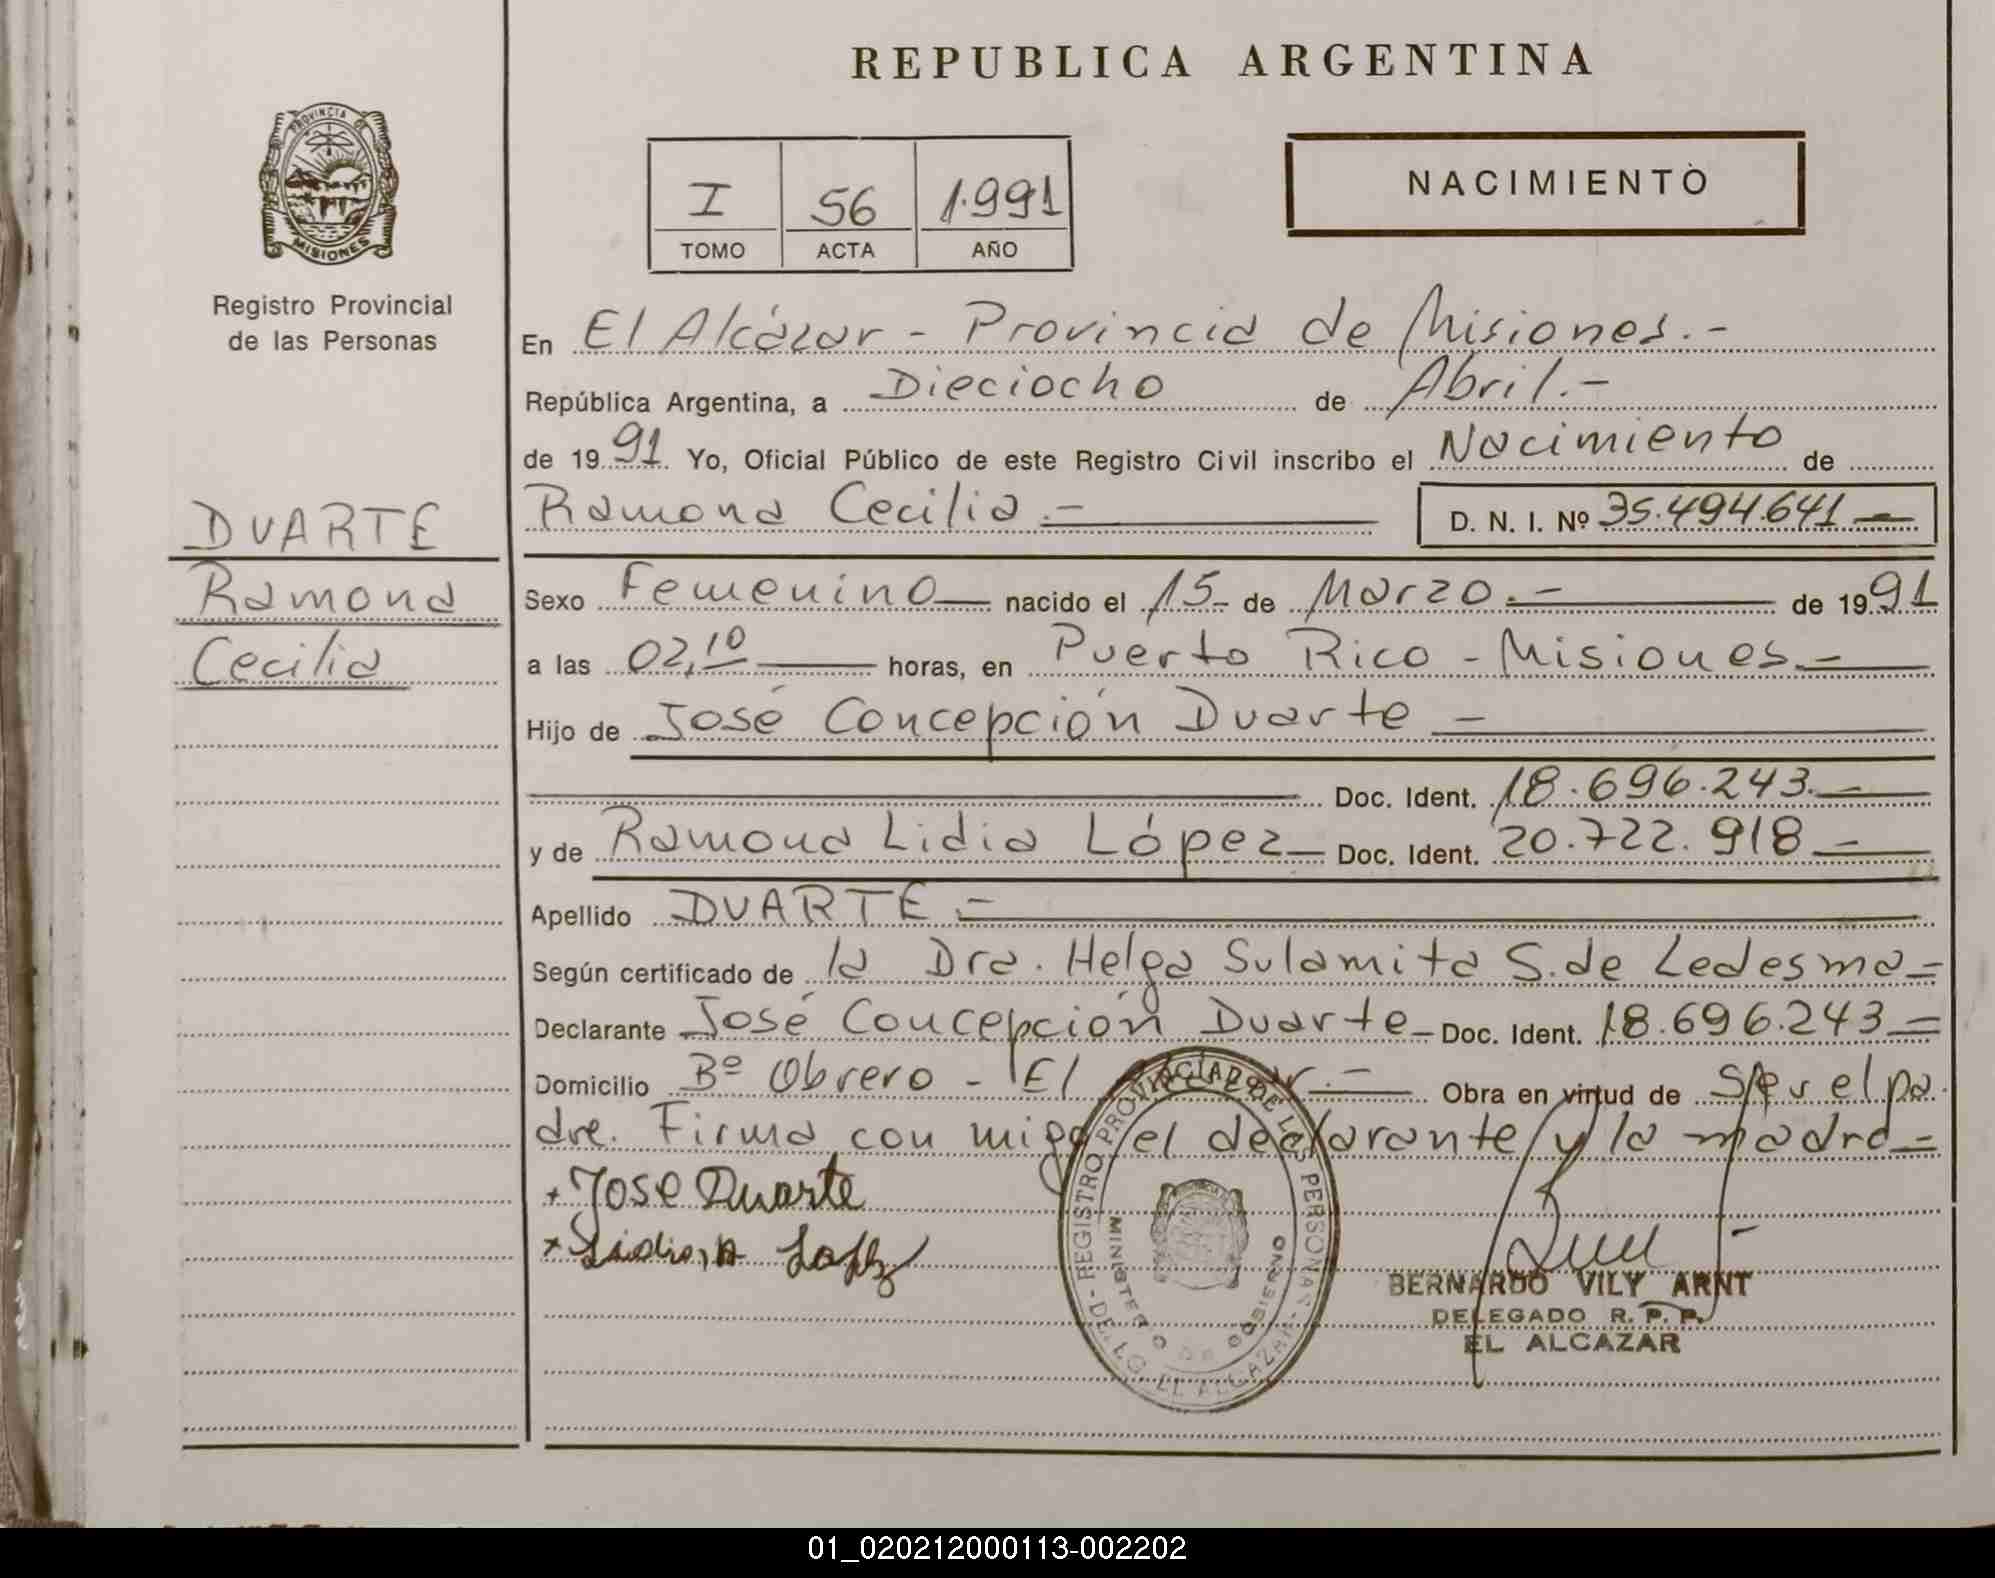 REPUBLICA ARGENTINA
PROVINCIA DE
MISIONES
Registro Provincial
de las Personas
I 56 1.991
TOMO ACTA AÑO
NACIMIENTO
En El Alcázar - Provincia de Misiones.-
República Argentina, a Dieciocho de Abril.-
de 1991. Yo, Oficial Público de este Registro Civil inscribo el Nacimiento de
Ramona Cecilia.- D. N. I. Nº 35.494.641-
DUARTE
Ramona
Cecilia
Sexo Femenino nacido el 15- de Marzo.- de 1991
a las 02,10 horas, en Puerto Rico - Misiones-
Hijo de José Concepción Duarte -
Doc. Ident. 18.696.243.-
y de Ramona Lidia López- Doc. Ident. 20.722.918-
Apellido DUARTE.-
Según certificado de la Dra. Helga Sulamita S. de Ledesma-
Declarante José Concepción Duarte- Doc. Ident. 18.696.243-
Domicilio Bº Obrero - El .- Obra en virtud de Ser el pa
dre. Firma con migo el declarante y la madre-
+ Jose Duarte
+ Lopez
REGISTRO PROVINCIAL DE LAS PERSONAS - DELEG. EL ALCAZAR -
MINISTERIO DE GOBIERNO
BERNARDO VILY ARNT
DELEGADO R. P. P.
EL ALCAZAR
01_020212000113-002202